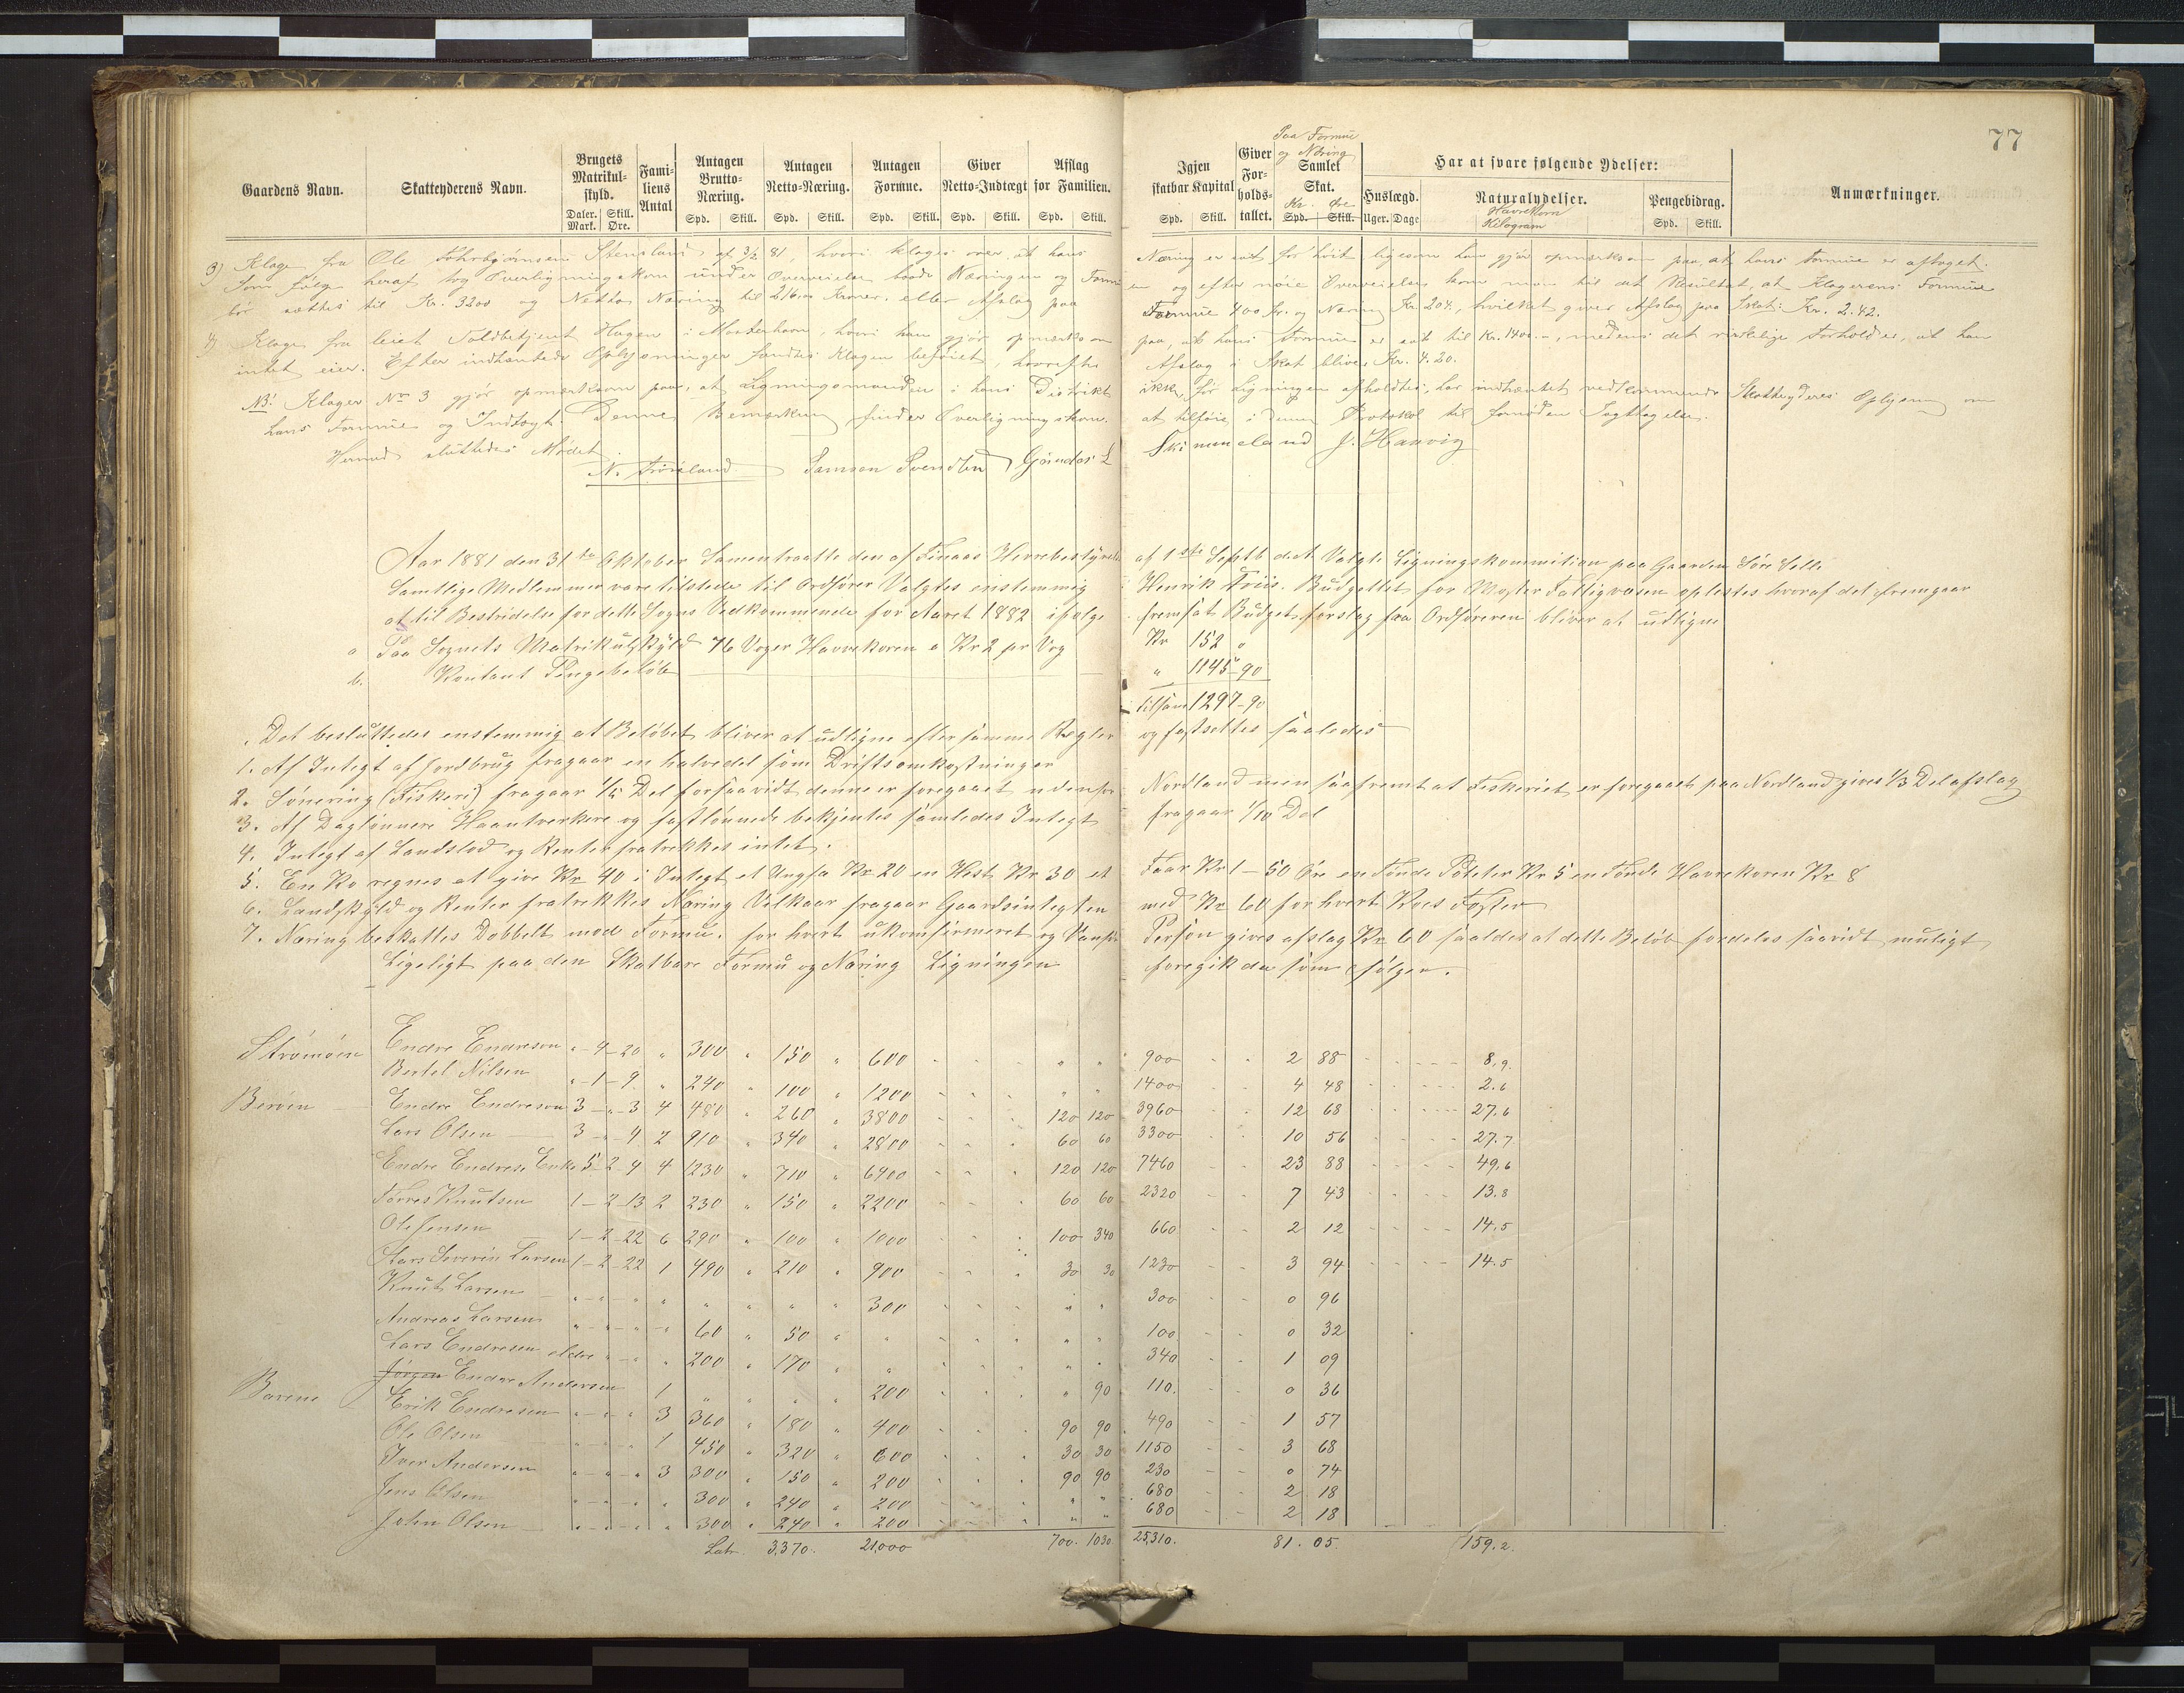 77
Paa Formue
og Næring
Gaardens Navn. Skatteyderens Navn. Brugets Matrikul-skyld. Daler. Mark. Skill. Øre. Familiens Antal Antagen Brutto-Næring. Spd. Skill. Antagen Netto-Næring. Spd. Skill. Antagen Formue. Spd. Skill. Giver Netto-Indtægt Spd. Skill. Afslag for Familien. Spd. Skill. Igjen skatbar Kapital Spd. Skill. Giver For-holds-tallet. Samlet Skat. Kr. Øre Spd. Skill. Har at svare følgende Ydelser: Huslægd. Uger. Dage Naturalydelser. Havrekorn Kilogram Pengebidrag. Spd. Skill. Anmærkninger.
3) Klage fra Ole Stensland af 3/2 81, hvori klages over, at hans Næring er sat for høit ligesom han gjør opmærksom paa, at hans Formue er aftaget.
Som følge heraf tog Overligningskom under Overveielse baade Næringen og Formuen og efter nøie Overveielse kom man til det Resultat, at Klagerens Formue
bør sættes til Kr. 3200 og Netto Næring til 216,00 Kroner, eller Afslag paa Formue 400 Kr. og Næring Kr. 204, hvilket giver Afslag paa Skat: Kr. 2.42.
4) Klage fra leiet Toldbetjent Hagen i Mosterhavn, hvori han gjør opmærksom paa, at hans Formue er sat til Kr. 1400.-, medens det virkelige Forhold er, at han
intet eier. Efter indhentede Oplysninger fandtes Klagen beføiet, hvorefter Afslag i Skat bliver Kr. 4.20.
NB! Klager No 3 gjør opmærksom paa, at Ligningsmanden i hans Distrikt ikke, før Ligningen afholdtes, har indhentet vedkommende Skatteyderes Oplysn om
hans Formue og Indtægt. Denne Bemærkning finder Overligningskom. at tilføie i denne Protokol til fornøden Iagttagelse.
Hermed sluttedes Mødet.
N. Frøisland Samson Svendsen Gjundar L Skimmeland J. Hanvig
Aar 1881 den 31te Oktober Sammentraatte den af Finaas Herredsbestyrelse af 1ste Septb d.A. Valgte Ligningskommition paa Gaarden Søre Selle
Samtlige Medlemmer vare tilstede til Ordfører Valgtes enstemmig Henrik Friis. Budgettet for Moster Fattigvæsen oplæstes hvoraf det fremgaar
at til Bestridelse for dette Sogns Vedkommende for Aaret 1882 ifølge fremsat Budgetsforslag fra Ordføreren bliver at udligne
a Paa Sognets Matrikulskyld 76 Voger Havrekoren a Kr 2 pr Vog Kr 152 "
b. Kontant Pengebeløb " 1145-90
tilsam 1297-90
Det besluttedes enstemmig at Beløbet bliver at udligne efter samme Regler og fastsettes saaledes
1. Af Integt af Jordbrug fragaar en halvedel som Driftsomkostninger
2. Sønering (Fiskeri) fragaar 1/5 Del forsaavidt denne er foregaaet udenfor Nordland men saafremt at Fiskeriet er foregaaet paa Nordland gives 1/3 Del afslag
3. Af Dagløunere Haantverkere og fastlønnede bekjentes samledes Integt fragaar 1/10 Del
4. Integt af Landslod og Renter fratrekkes intet.
5. En Ko regnes at give Kr 40 i Integt et Ungfæ Kr 20 en Hest Kr 30 et Faar Kr 1-50 Øre en Tønde Poteter Kr 5 en Tønde Havrekoren Kr 8
6. Landskyld og Renter fratrekkes Næring Volkaar fragaar Gaardsintegten med Kr 60 for hvert Kors Foster
7. Næring beskattes Dobbelt mod Formu. for hvert ukonfirmeret og Vanfør Person gives afslag Kr 60 saaledes at dette Beløb fordeles saavidt muligt
Ligeligt paa den Skatbare Formu og Næring Ligningen foregik da som følger.
Strømøen Endre Endreson " 4 20 " 300 " 150 " 600 " " 900 2 88 8.9.
Bertel Nilsen " 1 9 " 240 " 100 " 1200 " " 1400 4 48 2.6
Berøen Endre Endreson 3 " 3 4 480 " 260 " 3800 120 120 3960 12 68 27.6
Lars Olsen 3 " 4 2 910 " 340 " 2800 60 60 3300 10 56 27.7
Endre Endrese Enke 5 2 4 4 1230 " 710 " 6400 120 120 7460 23 88 49.6
Torres Knutsen 1 2 13 2 230 " 150 " 2200 60 60 2320 7 43 13.8
Ole Jensen 1 2 22 6 290 " 100 " 1000 100 340 660 2 12 14.5
Lars Severin Larsen 1 2 22 1 490 " 210 " 900 30 30 1230 3 94 14.5
Knut Larsen " " " " " " " " 300 " " 300 0 96
Andreas Larsen " " " " 60 " 50 " " " " 100 0 32
Lars Endresen eldre " " " 200 " 170 " " " " 340 1 09
Jørgen Endre Andersen 1 " " " 200 " 90 110. 0 36
Barene Erik Endresen " " " 3 360 " 180 " 400 90 90 490 1 57
Ole Olsen " " " 1 450 " 320 " 600 30 30 1150 3 68
Iver Andersen " " " 3 300 " 150 " 200 90 90 230 0 74
Jens Olsen " " " " 300 " 240 " 200 " " 680 2 18
John Olsen " " " " 300 " 240 " 200 " " 680 2 18
Latr. 3,370. 21,000 700. 1030 25,310. 81.05. 159.2.